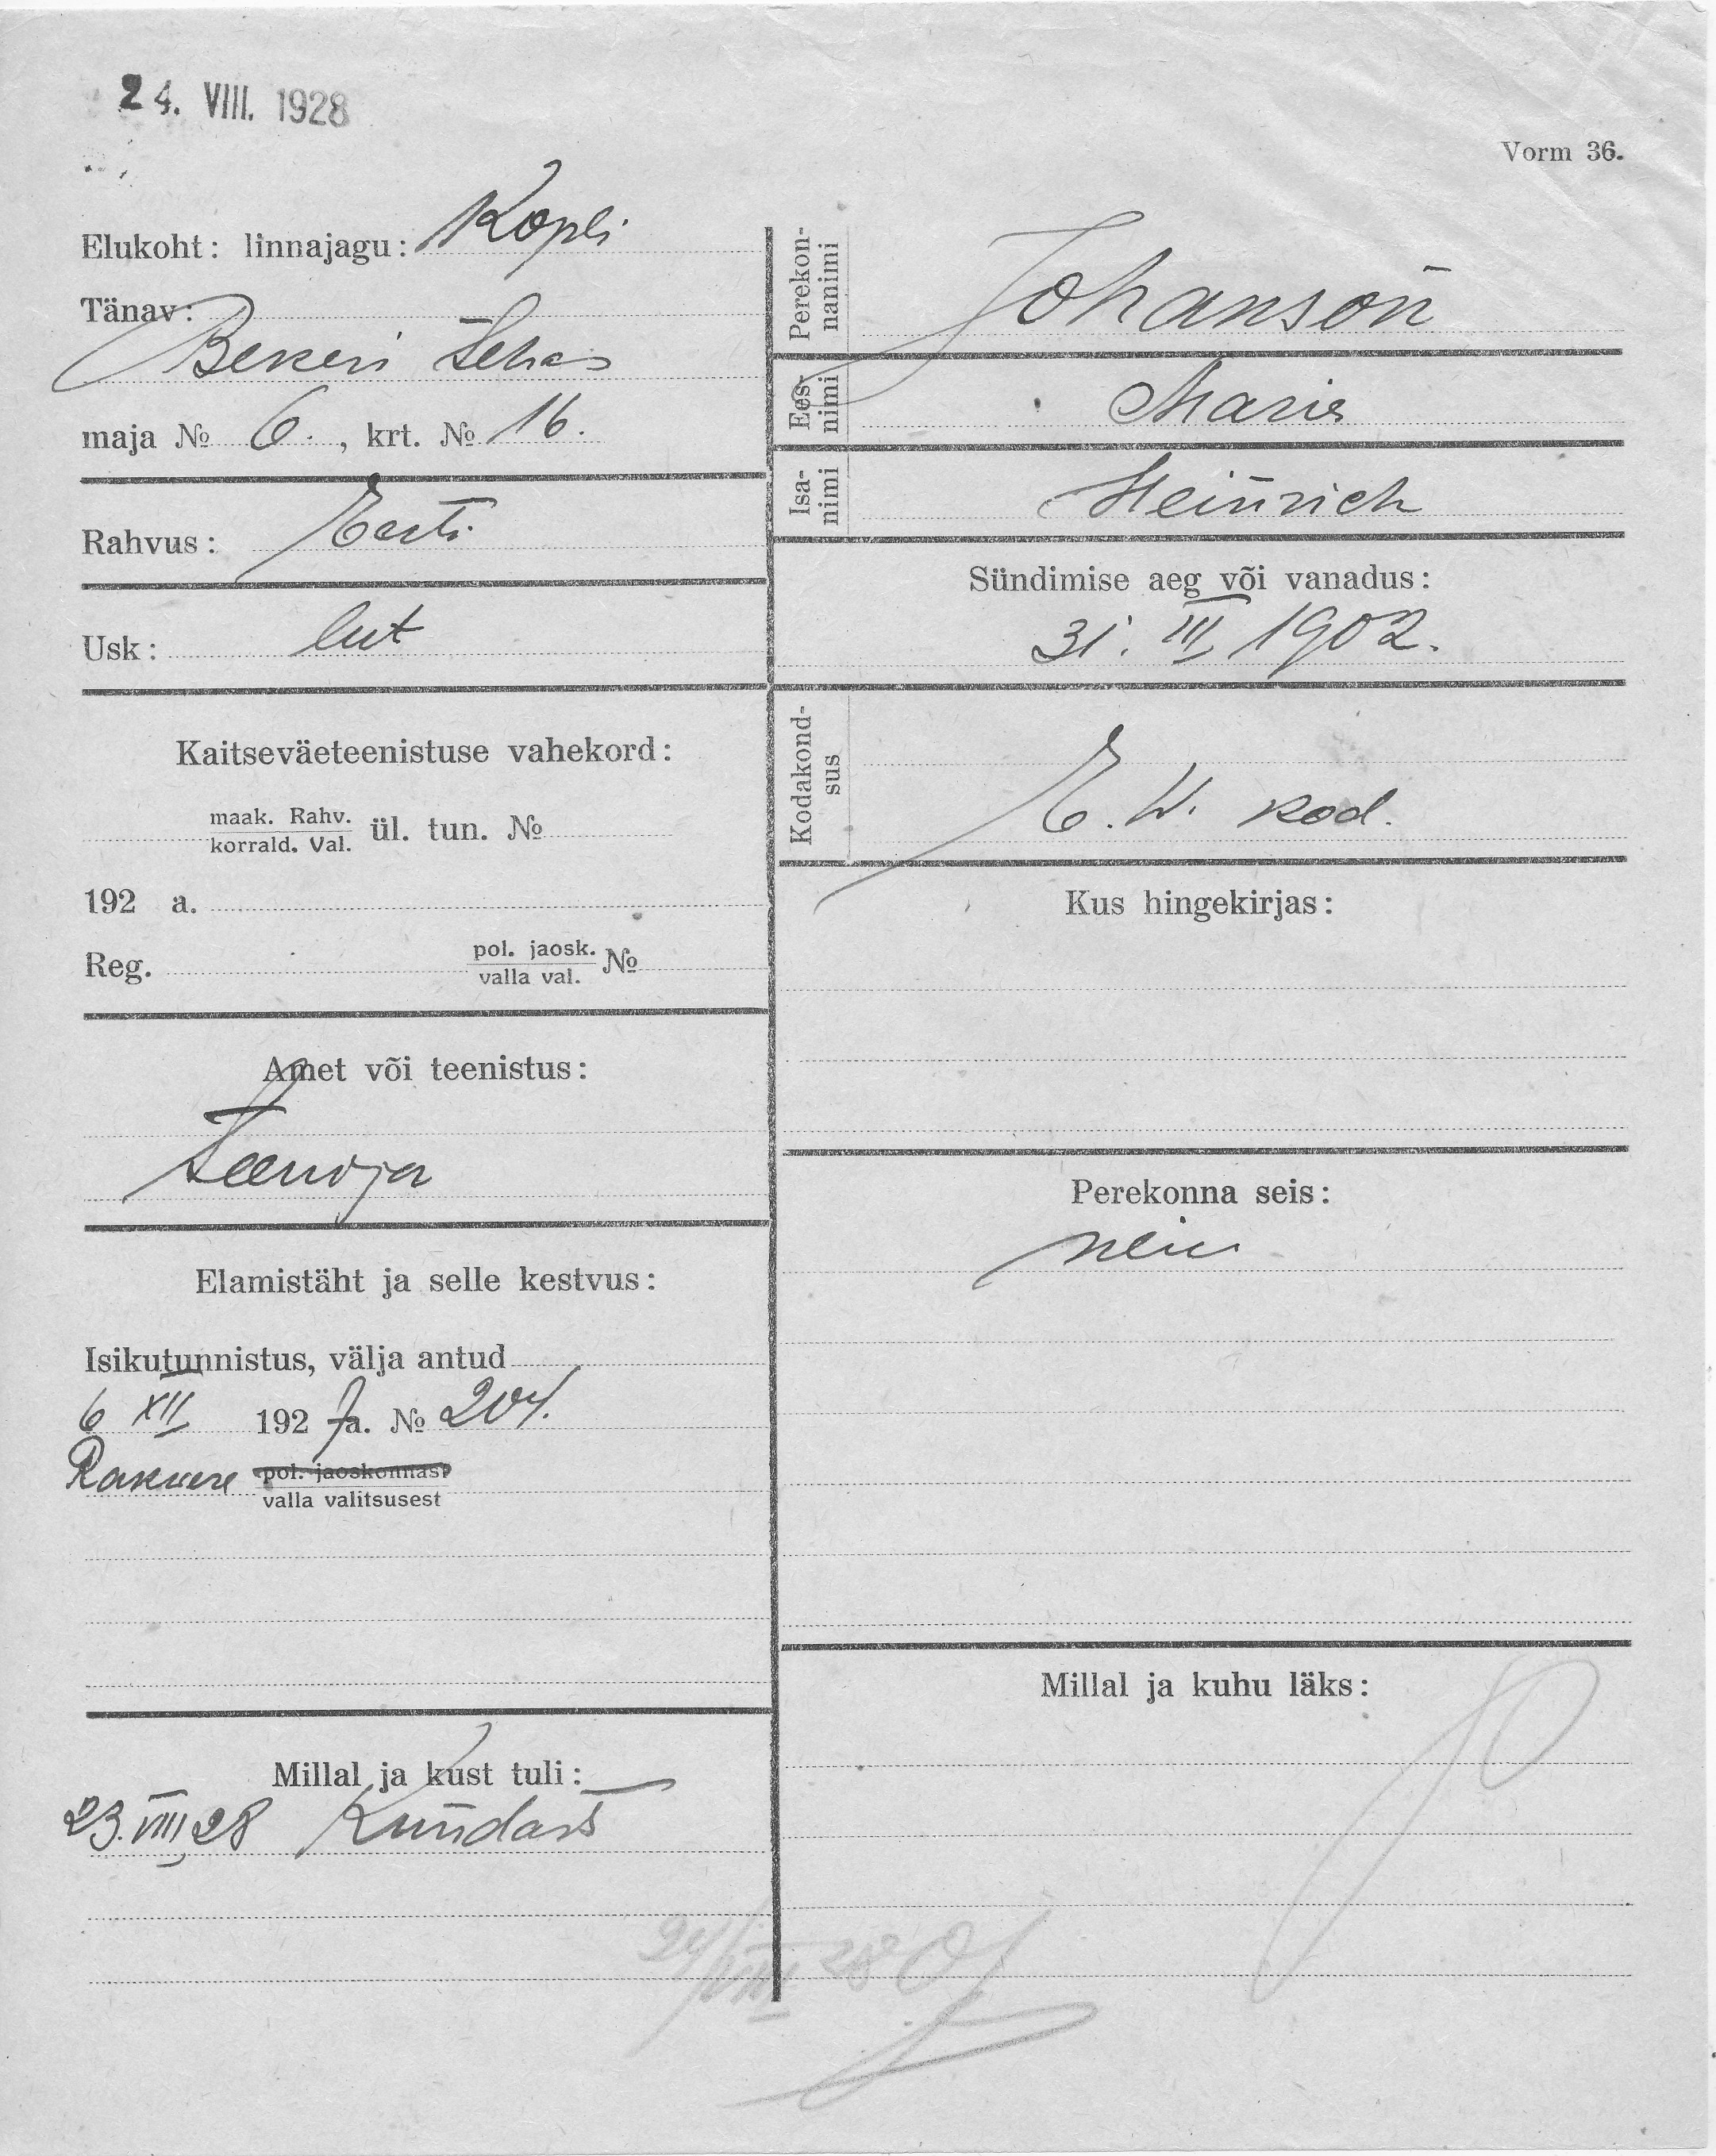 24. VIII. 1928
Vorm 36.
Elukoht: linnajagu: Kopli
Tänav:
Bekeri tehas
maja № 6., krt. № 16.
Rahvus: Eesti
Usk: lut
Kaitseväeteenistuse vahekord:
maak. Rahv.
korrald. Val. ül. tun. №
192 a.
Reg. pol. jaosk.
valla val. №
Amet või teenistus:
Teenija
Elamistäht ja selle kestvus:
Isikutunnistus, välja antud
6 XII 1927 a. № 204.
Rakvere pol. jaoskonnast
valla valitsusest
Millal ja kust tuli:
23.VIII 28 Kundast
Perekon-
nanimi
Johanson
Ees-
nimi
Marie
Isa-
nimi
Heinrich
Sündimise aeg või vanadus:
31. III 1902.
Kodakond-
sus
E. W. kod.
Kus hingekirjas:
Perekonna seis:
neiu
Millal ja kuhu läks:
24/VIII 28